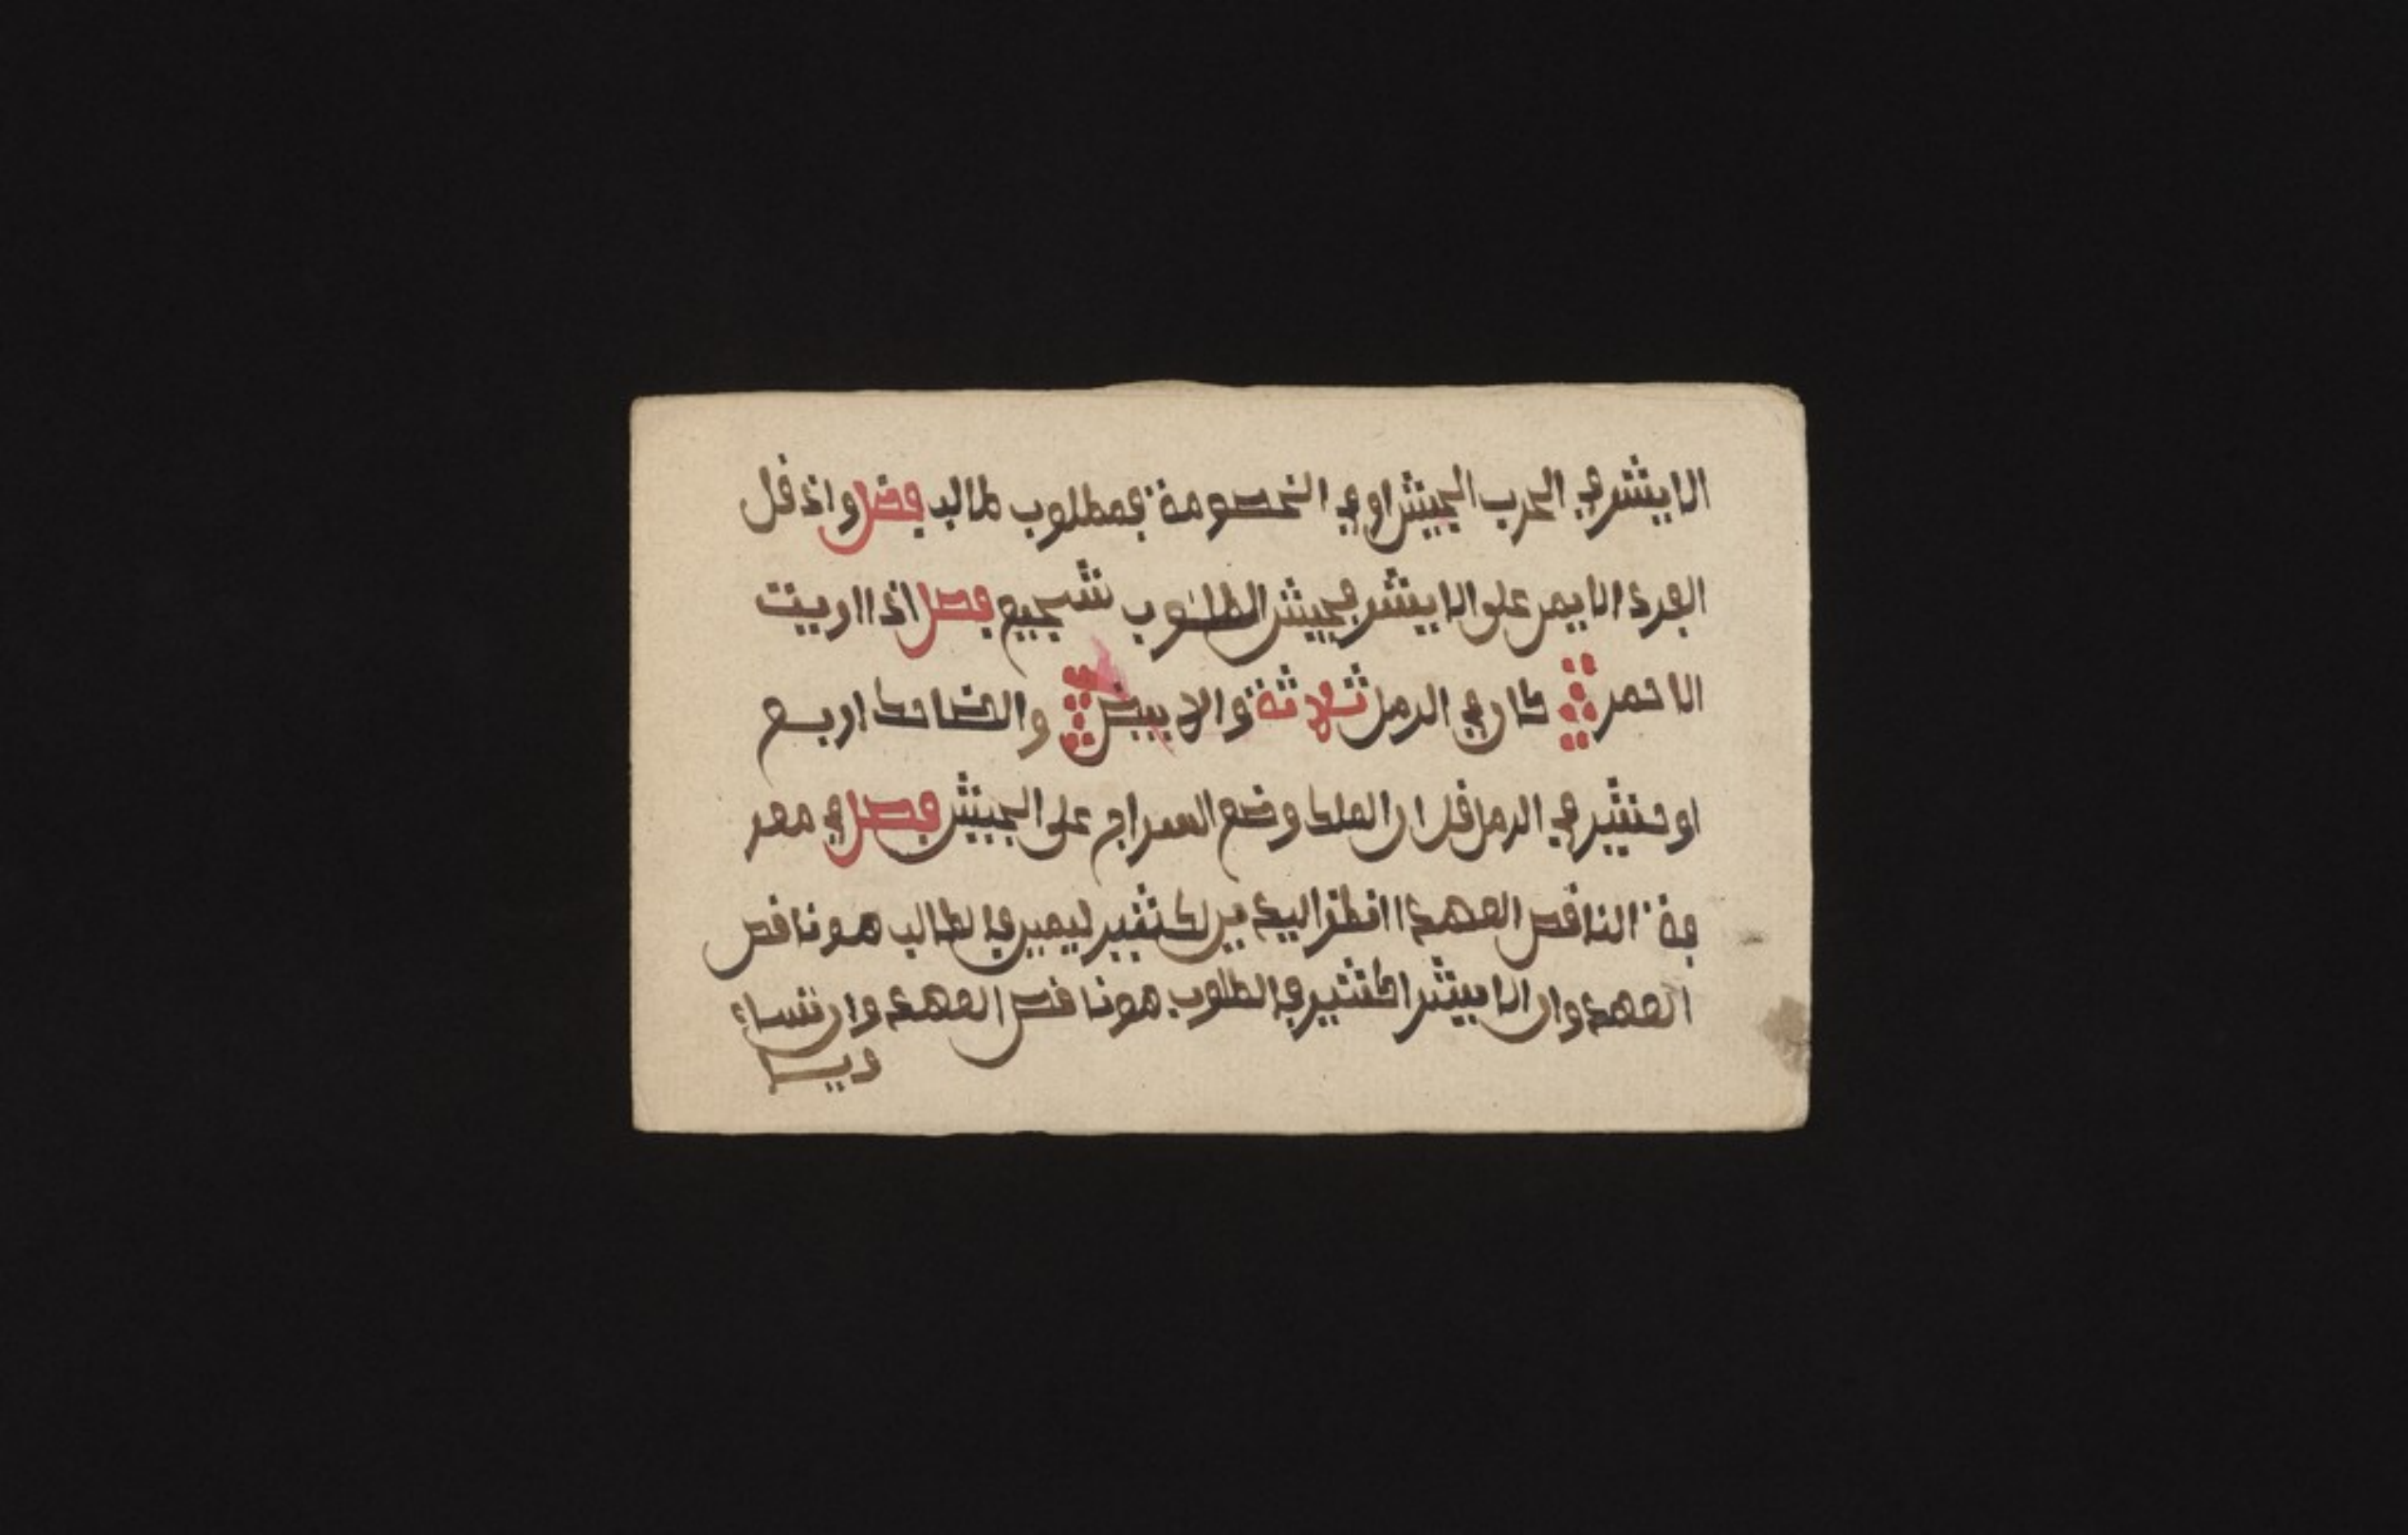 الايسر في الحرب الجيش او في الخصومة فمطلوب طالب فصل واذ قل
الفرد الايمن على الايسر فجيش المطلوب شجيع فصل اذا اريت
الاحمر كان في الرمل ثلاثة والابيض والضاحك اربع
او حثير في الرمل قل ان الملك وضع السراج على الجيش فصل في معر
فة الناقص العهد انظر اليه من كثير ليمين فالطالب هو ناقص
العهد وان الايسر اكثير فالمطلوب هو ناقص العهد وان تساء
ويا